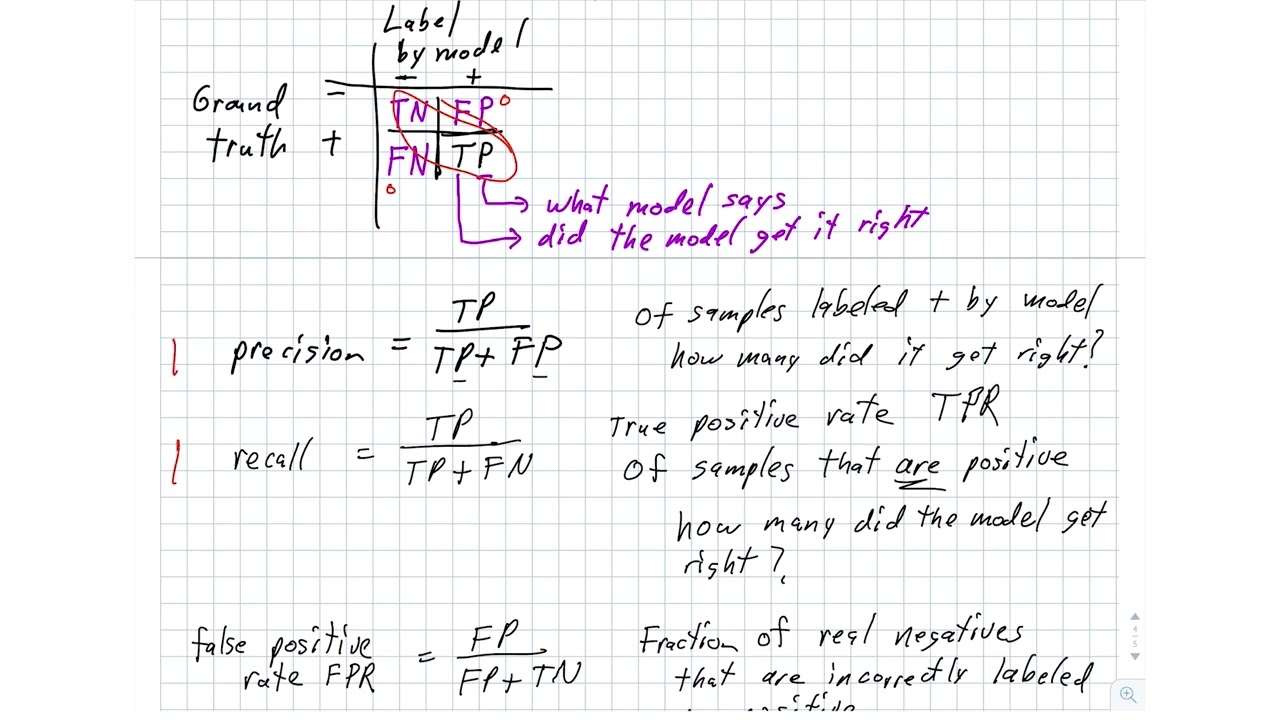 Label
by model
- +
Ground -
truth +
TN FP 0
FN TP
0
what model says
did the model get it right
1 precision = TP / TP + FP
of samples labeled + by model
how many did it get right?
1 recall = TP / TP + FN
True positive rate TPR
of samples that are positive
how many did the model get
right?
false positive
rate FPR = FP / FP + TN
Fraction of real negatives
that are incorrectly labeled
4
5